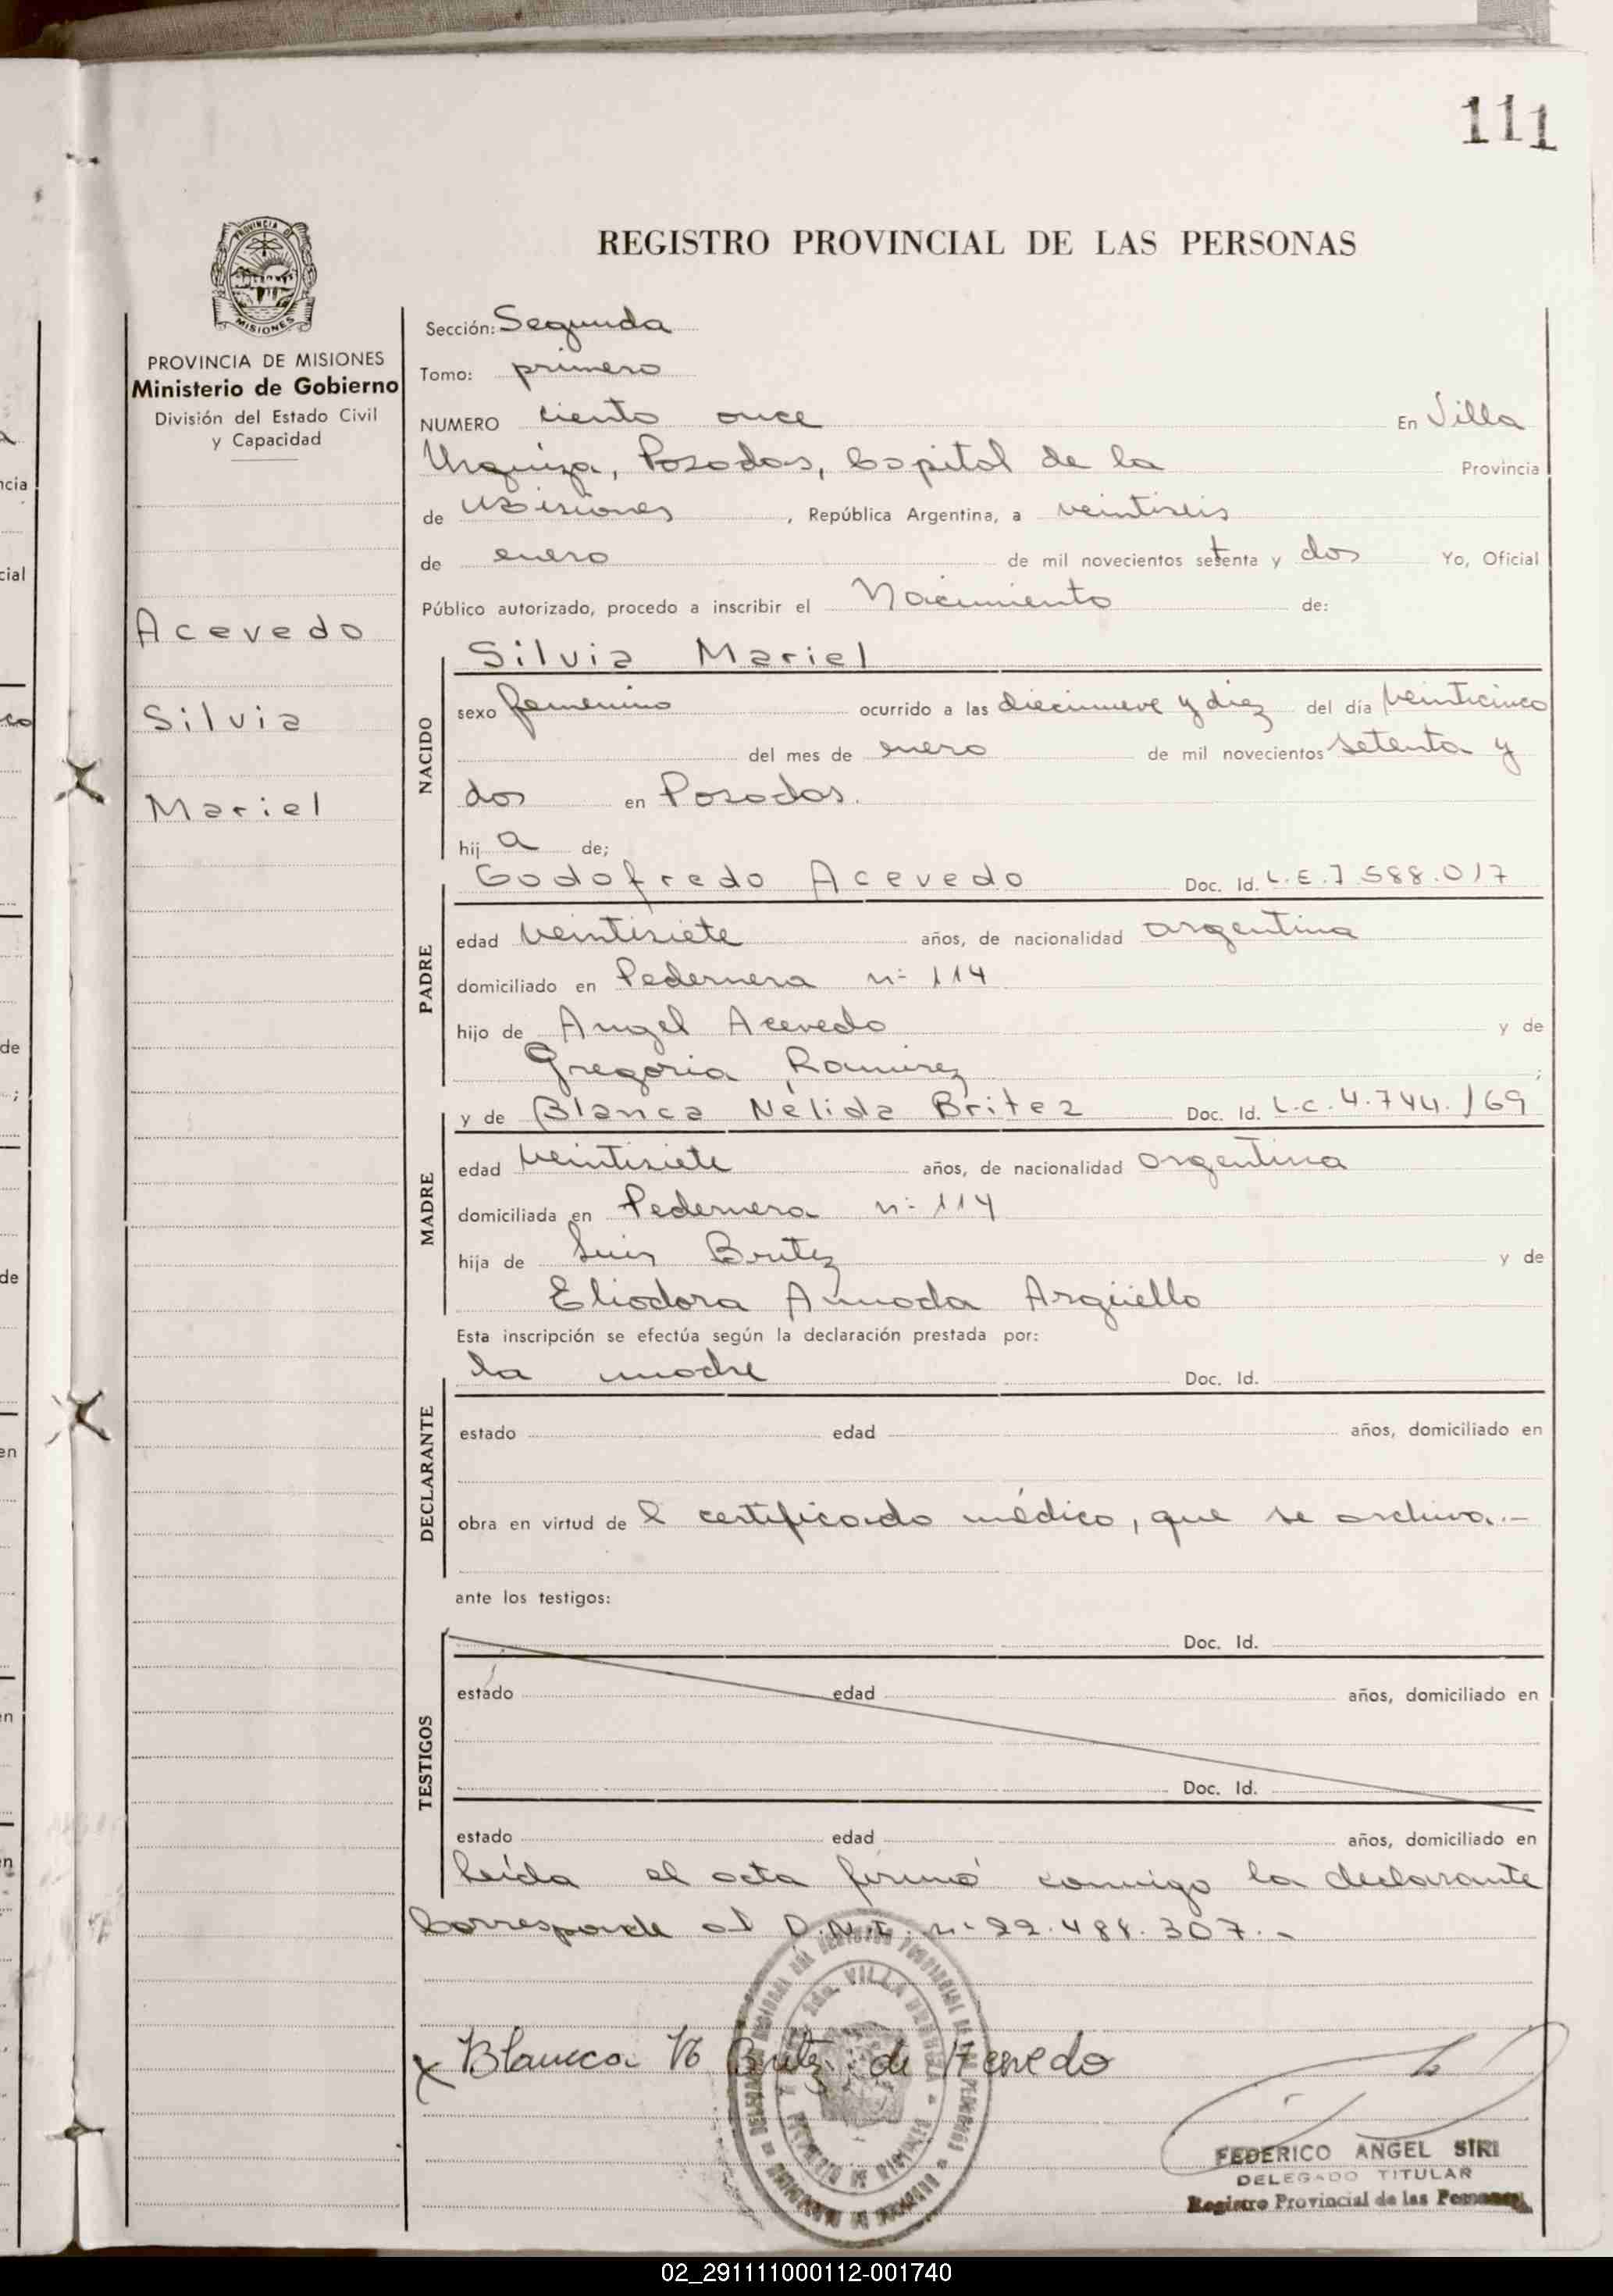 111
REGISTRO PROVINCIAL DE LAS PERSONAS
PROVINCIA DE MISIONES
Ministerio de Gobierno
División del Estado Civil
y Capacidad
Acevedo
Silvia
Mariel
Sección: Segunda
Tomo: primero
NUMERO ciento once En Villa
Urquiza, Posadas, Capital de la Provincia
de Misiones, República Argentina, a veintiseis
de enero de mil novecientos setenta y dos Yo, Oficial
Público autorizado, procedo a inscribir el Nacimiento de:
Silvia Mariel
NACIDO
sexo femenino ocurrido a las diecinueve y diez del día veinticinco
del mes de enero de mil novecientos setenta y
dos en Posadas.
hija de;
Godofredo Acevedo Doc. Id. L.E. 7.588.017
PADRE
edad veintisiete años, de nacionalidad argentina
domiciliado en Pedernera nº 114
hijo de Angel Acevedo y de
Gregoria Ramirez;
y de Blanca Nélida Britez Doc. Id. L.C. 4.744.169
MADRE
edad veintisiete años, de nacionalidad argentina
domiciliada en Pedernera nº 114
hija de Luis Britez y de
Eliodora Amada Argüello
Esta inscripción se efectúa según la declaración prestada por:
la madre Doc. Id.
DECLARANTE
estado edad años, domiciliado en
obra en virtud de l certificado médico, que se archiva.-
ante los testigos:
Doc. Id.
TESTIGOS
estado edad años, domiciliado en
Doc. Id.
estado edad años, domiciliado en
Leída el acta firmó conmigo la declarante
Corresponde al D.N.I. nº 22.488.307.-
Blanca N Britez de Acevedo
FEDERICO ANGEL SIRI
DELEGADO TITULAR
Registro Provincial de las Personas
02_291111000112-001740